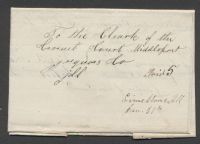 To The Clerk of the
Circuit Court Middleport
Iroquois Co
Ill
Paid 5
Grove Ill